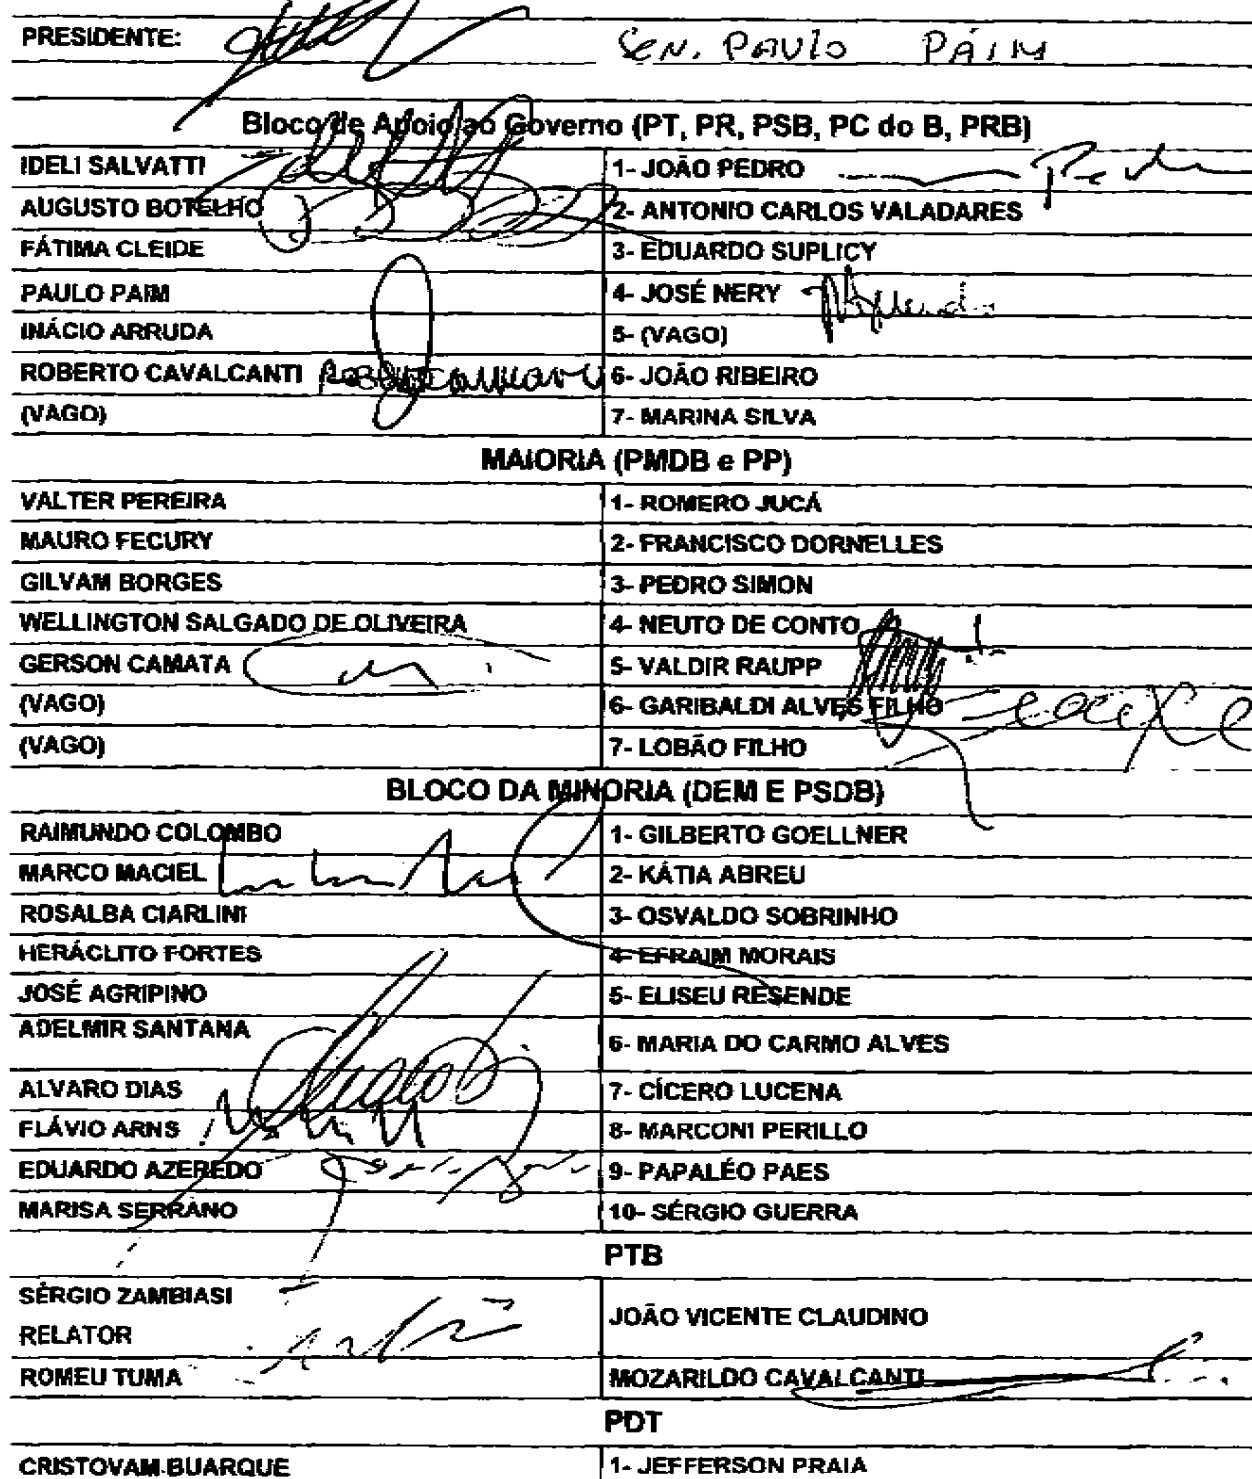 PRESIDENTE: SEN. PAULO PAIM
Bloco de Apoio ao Governo (PT, PR, PSB, PC do B, PRB)
IDELI SALVATTI 1- JOÃO PEDRO
AUGUSTO BOTELHO 2- ANTONIO CARLOS VALADARES
FÁTIMA CLEIDE 3- EDUARDO SUPLICY
PAULO PAIM 4- JOSÉ NERY
INÁCIO ARRUDA 5- (VAGO)
ROBERTO CAVALCANTI 6- JOÃO RIBEIRO
(VAGO) 7- MARINA SILVA
MAIORIA (PMDB e PP)
VALTER PEREIRA 1- ROMERO JUCÁ
MAURO FECURY 2- FRANCISCO DORNELLES
GILVAM BORGES 3- PEDRO SIMON
WELLINGTON SALGADO DE OLIVEIRA 4- NEUTO DE CONTO
GERSON CAMATA 5- VALDIR RAUPP
(VAGO) 6- GARIBALDI ALVES FILHO
(VAGO) 7- LOBÃO FILHO
BLOCO DA MINORIA (DEM E PSDB)
RAIMUNDO COLOMBO 1- GILBERTO GOELLNER
MARCO MACIEL 2- KÁTIA ABREU
ROSALBA CIARLINI 3- OSVALDO SOBRINHO
HERÁCLITO FORTES 4- EFRAIM MORAIS
JOSÉ AGRIPINO 5- ELISEU RESENDE
ADELMIR SANTANA 6- MARIA DO CARMO ALVES
ALVARO DIAS 7- CÍCERO LUCENA
FLÁVIO ARNS 8- MARCONI PERILLO
EDUARDO AZEREDO 9- PAPALÉO PAES
MARISA SERRANO 10- SÉRGIO GUERRA
PTB
SÉRGIO ZAMBIASI
RELATOR JOÃO VICENTE CLAUDINO
ROMEU TUMA MOZARILDO CAVALCANTI
PDT
CRISTOVAM BUARQUE 1- JEFFERSON PRAIA